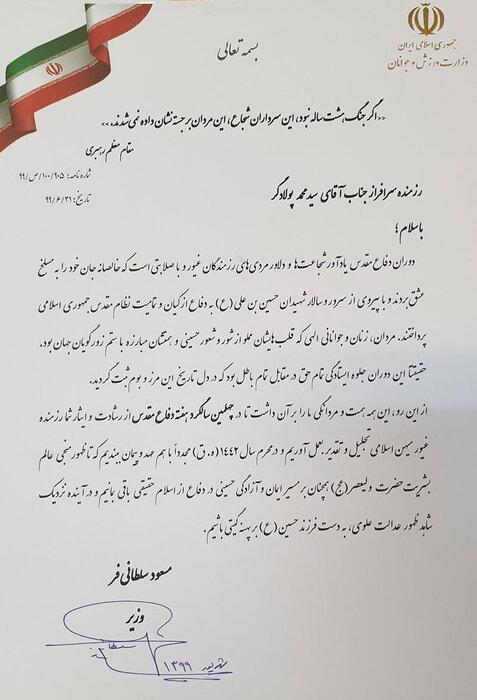 جمهوری اسلامی ایران
وزارت ورزش و جوانان
بسمه تعالی
<<اگر جنگ هشت ساله نبود، این سرداران شجاع، این مردان برجسته نشان داده نمی شدند.>>
مقام معظم رهبری
شماره نامه: ۹۹/ص/۱۰۰/۹۰۵
تاریخ: ۹۹/۶/۳۱
رزمنده سرافراز جناب آقای سید محمد پولادگر
با سلام؛
دوران دفاع مقدس یادآور شجاعت ها و دلاور مردی های رزمندگان غیور و با صلابتی است که خالصانه جان خود را به مسلخ
عشق بردند و با پیروی از سرور و سالار شهیدان حسین بن علی (ع) به دفاع از کیان و تمامیت نظام مقدس جمهوری اسلامی
پرداختند. مردان، زنان و جوانانی الهی که قلب هایشان مملو از شور و شعور حسینی و همتشان مبارزه با ستم زورگویان جهان بود.
حقیقتا این دوران جلوه ایستادگی تمام حق در مقابل تمام باطل بود که در دل تاریخ این مرز و بوم ثبت گردید.
از این رو، این همه همت و مردانگی ما را بر آن داشت تا در چهلمین سالگرد هفته دفاع مقدس از رشادت و ایثار شما رزمنده
غیور میهن اسلامی تجلیل و تقدیر بعمل آوریم و در محرم سال ۱۴۴۲ (ه.ق) مجدداً با هم عهد و پیمان ببندیم که تا ظهور منجی عالم
بشریت حضرت ولیعصر (عج) همچنان بر مسیر ایمان و آزادگی حسینی در دفاع از اسلام حقیقی باقی بمانیم و در آینده نزدیک
شاهد ظهور عدالت علوی، به دست فرزند حسین (ع) بر پهنه گیتی باشیم.
مسعود سلطانی فر
وزیر
شهریور ۱۳۹۹